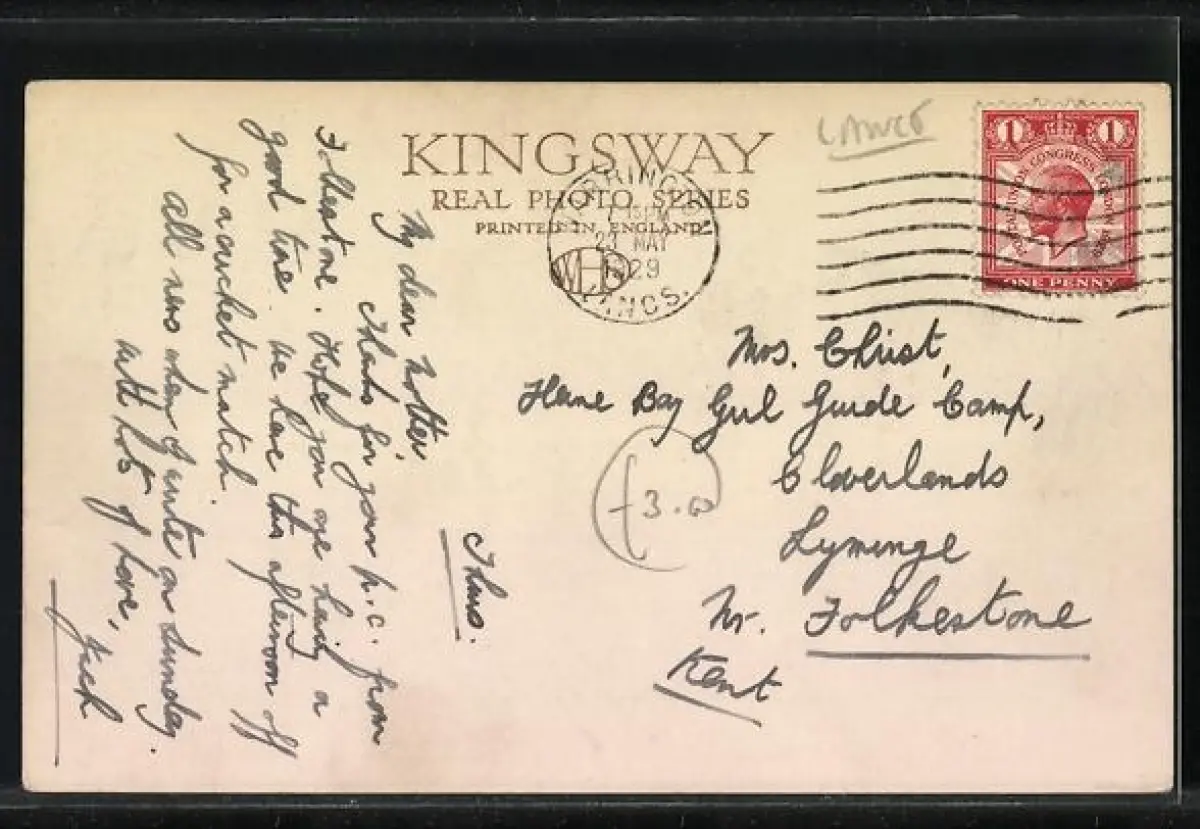 KINGSWAY
REAL PHOTO SERIES
PRINTED IN ENGLAND
LANCS
1 1
POSTAL UNION CONGRESS LONDON 1929
ONE PENNY
MAY
1929
LINCS.
Thurs.
My dear Mother,
Thanks for your p.c. from
Folkestone. Hope you are having a
good time. We have this afternoon off
for a cricket match.
All news when I write on Sunday.
With lots of love,
Jack
Mrs. Christ,
Herne Bay Girl Guide Camp,
Cloverlands
Lyminge
Nr. Folkestone
Kent
£3.00